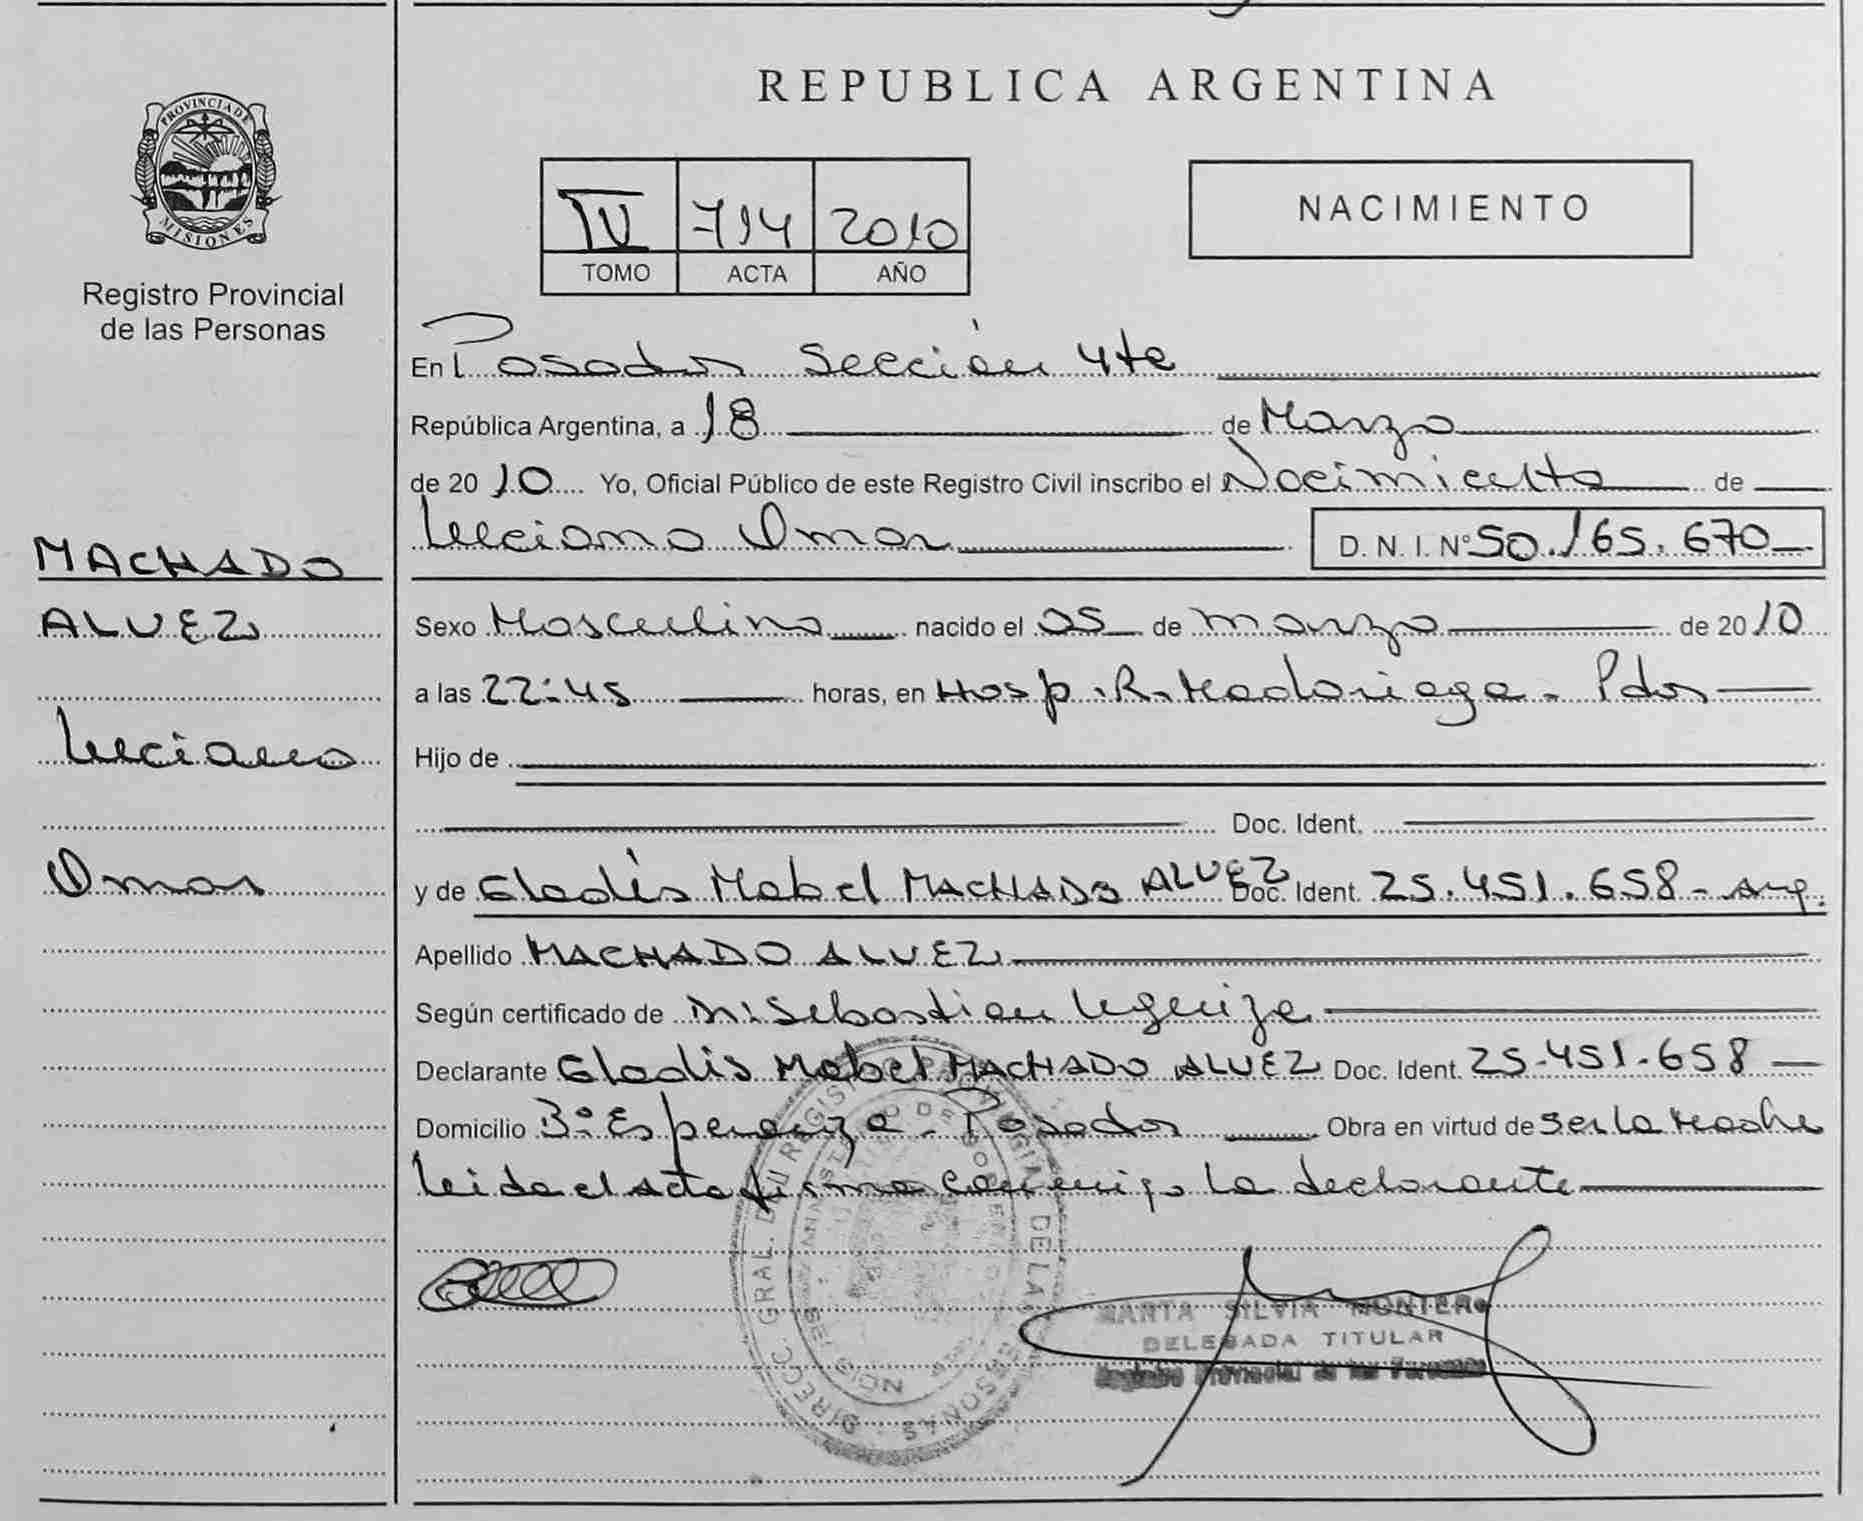 REPUBLICA ARGENTINA
PROVINCIA DE MISIONES
Registro Provincial
de las Personas
IV 714 2010
TOMO ACTA AÑO
NACIMIENTO
En Posadas Sección 4ta
República Argentina, a 18 de Marzo
de 2010 Yo, Oficial Público de este Registro Civil inscribo el Nacimiento de
Luciano Omar D. N. I. Nº 50.165.670
MACHADO
ALVEZ
Luciano
Omar
Sexo Masculino nacido el 05 de marzo de 2010
a las 22:45 horas, en Hosp. R. Madariaga - Pdas
Hijo de
Doc. Ident.
y de Gladis Mabel MACHADO ALVEZ Doc. Ident. 25.451.658 - arg.
Apellido MACHADO ALVEZ
Según certificado de Dr. Sebastian
Declarante Gladis Mabel MACHADO ALVEZ Doc. Ident. 25.451.658
Domicilio Bº Esperanza - Posadas Obra en virtud de ser la Madre
leida el acta firma conmigo la declarante
MARTA SILVIA MONTERO
DELEGADA TITULAR
Registro Provincial de las Personas